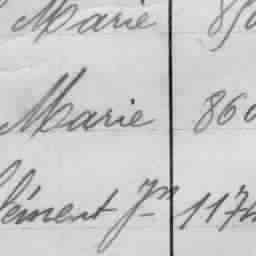 Marie
Marie 860
lément Jn 1174